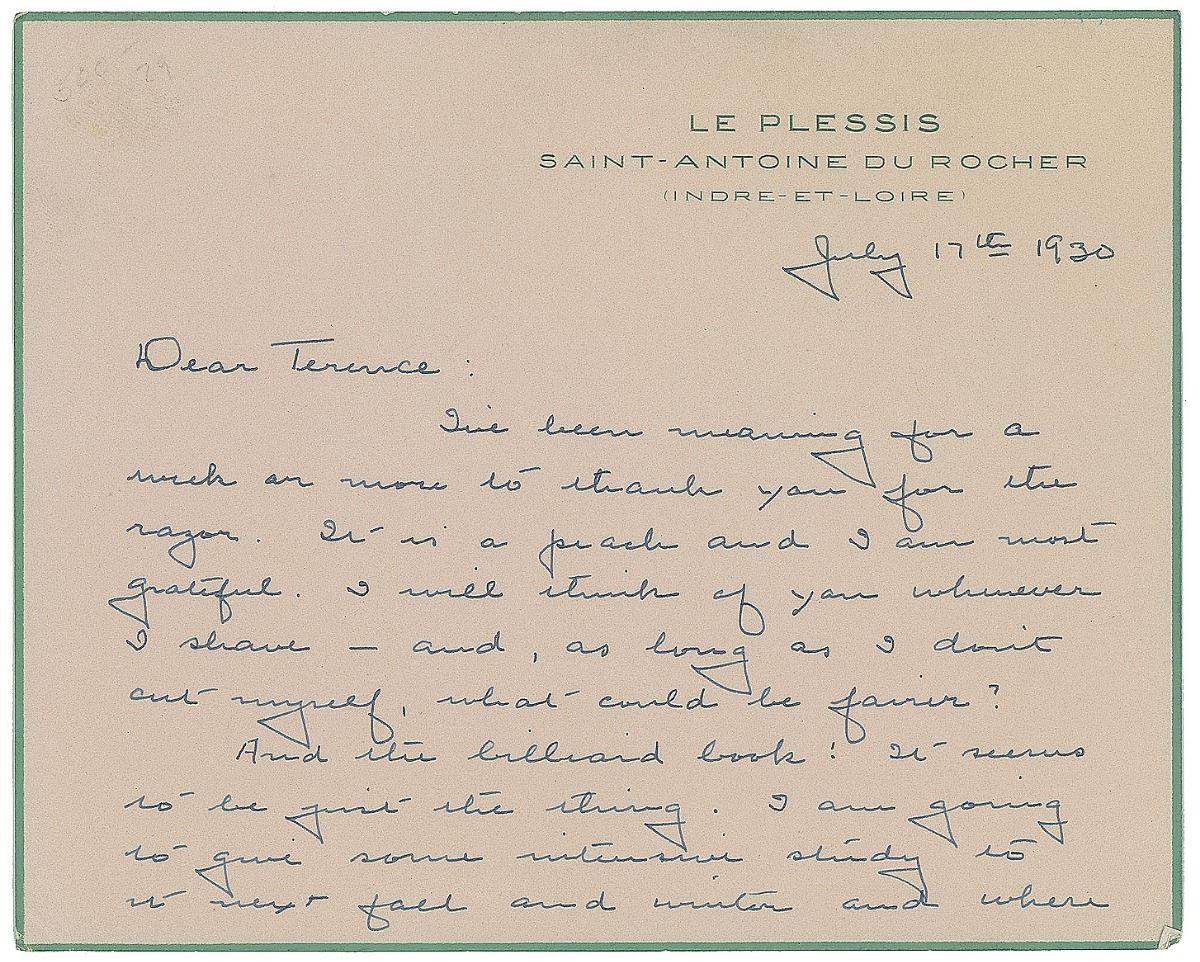 LE PLESSIS
SAINT-ANTOINE DU ROCHER
(INDRE-ET-LOIRE)
July 17th 1930
Dear Terence:
I've been meaning for a
week or more to thank you for the
razor. It is a peach and I am most
grateful. I will think of you whenever
I shave – and, as long as I don't
cut myself, what could be fairer?
And the billiard book! It seems
to be just the thing. I am going
to give some intensive study to
it next fall and winter and where